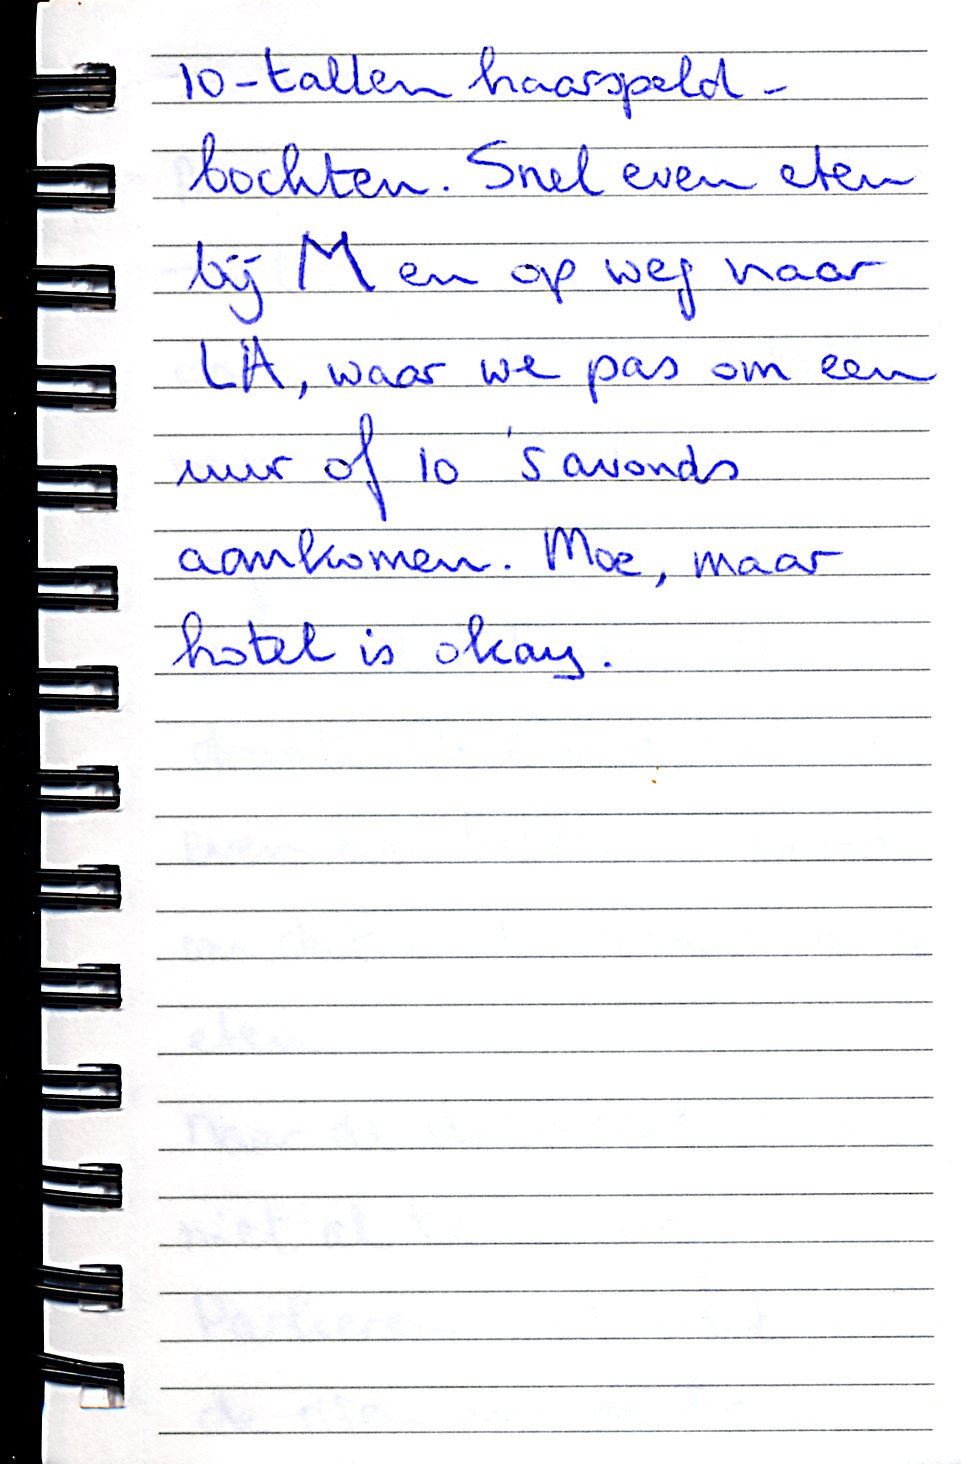 10-tallen haarspeld-
bochten. Snel even eten
bij M en op weg naar
LA, waar we pas om een
uur of 10 's avonds
aankomen. Moe, maar
hotel is okay.